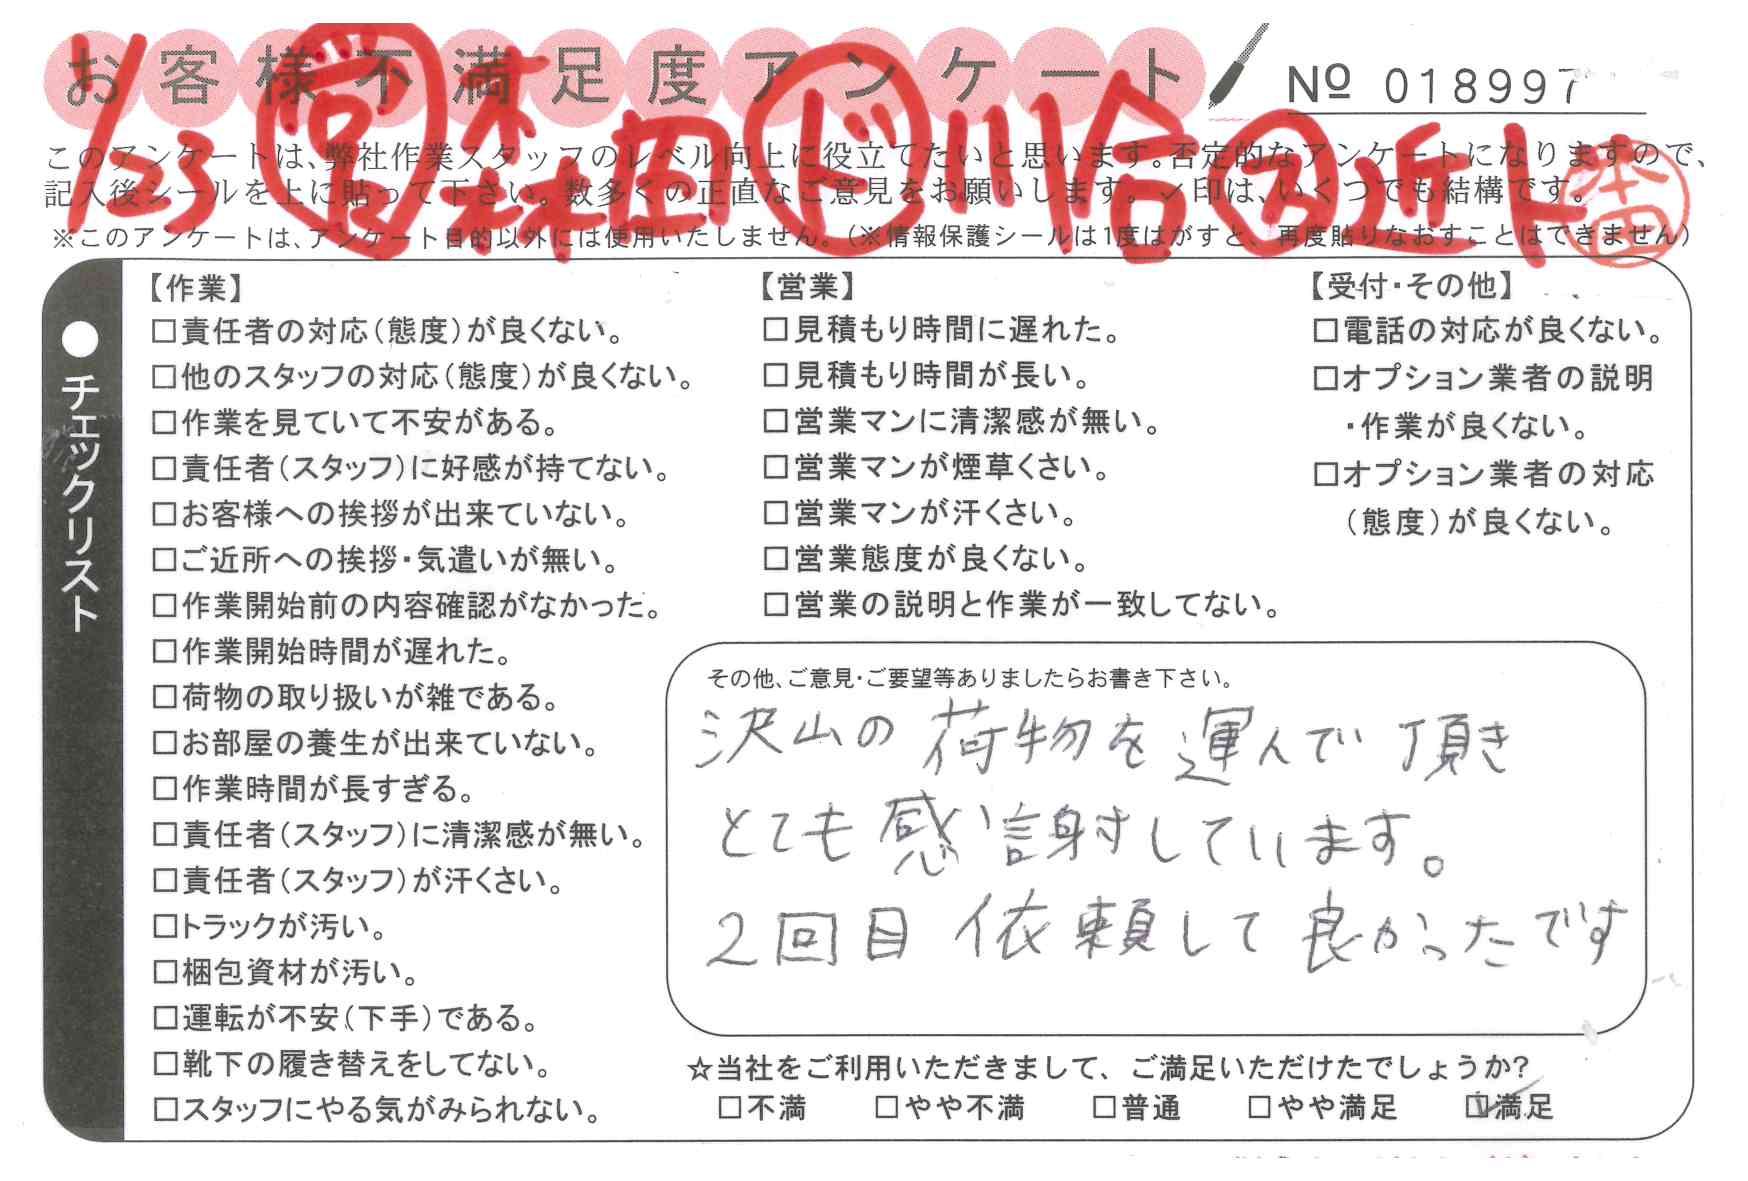 お客様不満足度アンケート
№ 018997
1/23 営 村林田 ド 川合 ア 近ト
本田
このアンケートは、弊社作業スタッフのレベル向上に役立てたいと思います。否定的なアンケートになりますので、
記入後シールを上に貼って下さい。数多くの正直なご意見をお願いします。✓印は、いくつでも結構です。
※このアンケートは、アンケート目的以外には使用いたしません。（※情報保護シールは1度はがすと、再度貼りなおすことはできません）
●チェックリスト
【作業】
□責任者の対応（態度）が良くない。
□他のスタッフの対応（態度）が良くない。
□作業を見ていて不安がある。
□責任者（スタッフ）に好感が持てない。
□お客様への挨拶が出来ていない。
□ご近所への挨拶・気遣いが無い。
□作業開始前の内容確認がなかった。
□作業開始時間が遅れた。
□荷物の取り扱いが雑である。
□お部屋の養生が出来ていない。
□作業時間が長すぎる。
□責任者（スタッフ）に清潔感が無い。
□責任者（スタッフ）が汗くさい。
□トラックが汚い。
□梱包資材が汚い。
□運転が不安（下手）である。
□靴下の履き替えをしてない。
□スタッフにやる気がみられない。
【営業】
□見積もり時間に遅れた。
□見積もり時間が長い。
□営業マンに清潔感が無い。
□営業マンが煙草くさい。
□営業マンが汗くさい。
□営業態度が良くない。
□営業の説明と作業が一致してない。
【受付・その他】
□電話の対応が良くない。
□オプション業者の説明
・作業が良くない。
□オプション業者の対応
（態度）が良くない。
その他、ご意見・ご要望等ありましたらお書き下さい。
沢山の荷物を運んで頂き
とても感謝しています。
2回目依頼して良かったです
☆当社をご利用いただきまして、ご満足いただけたでしょうか？
□不満 □やや不満 □普通 □やや満足 ☑満足